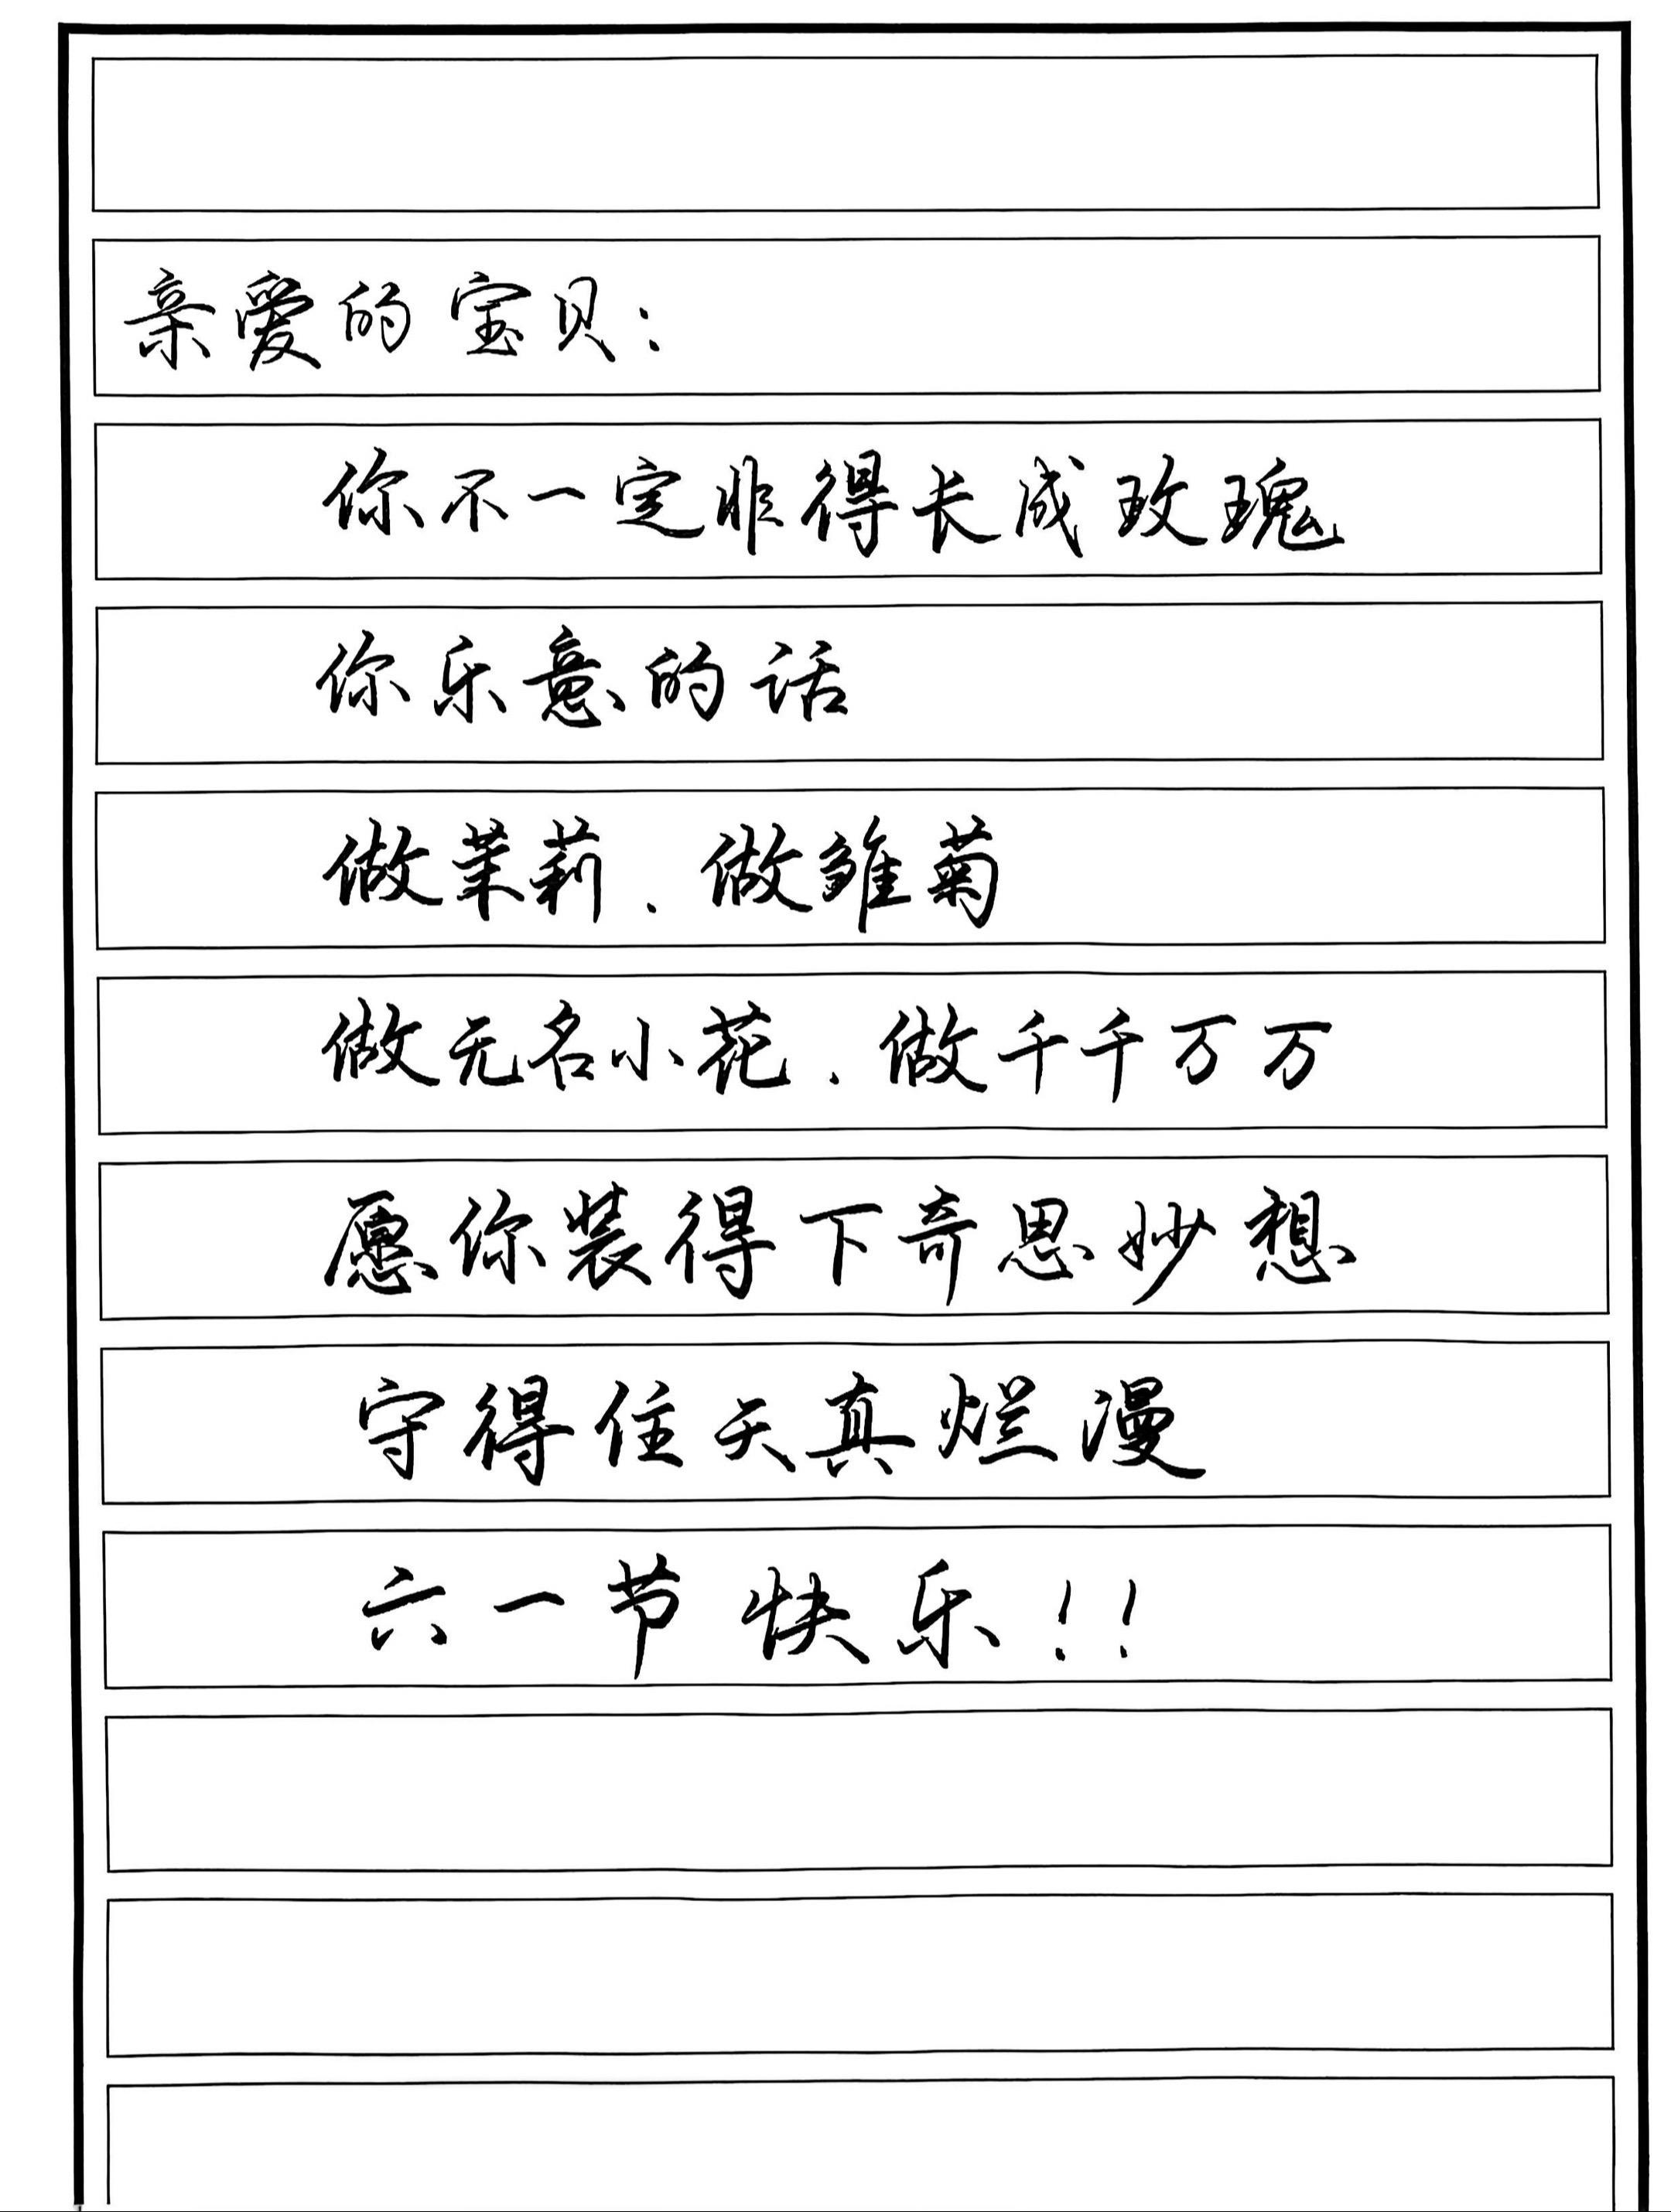 亲爱的宝贝：
你不一定非得长成玫瑰
你乐意的话
做茉莉、做雏菊
做无名小花、做千千万万
愿你装得下奇思妙想
守得住天真烂漫
六一节快乐！！